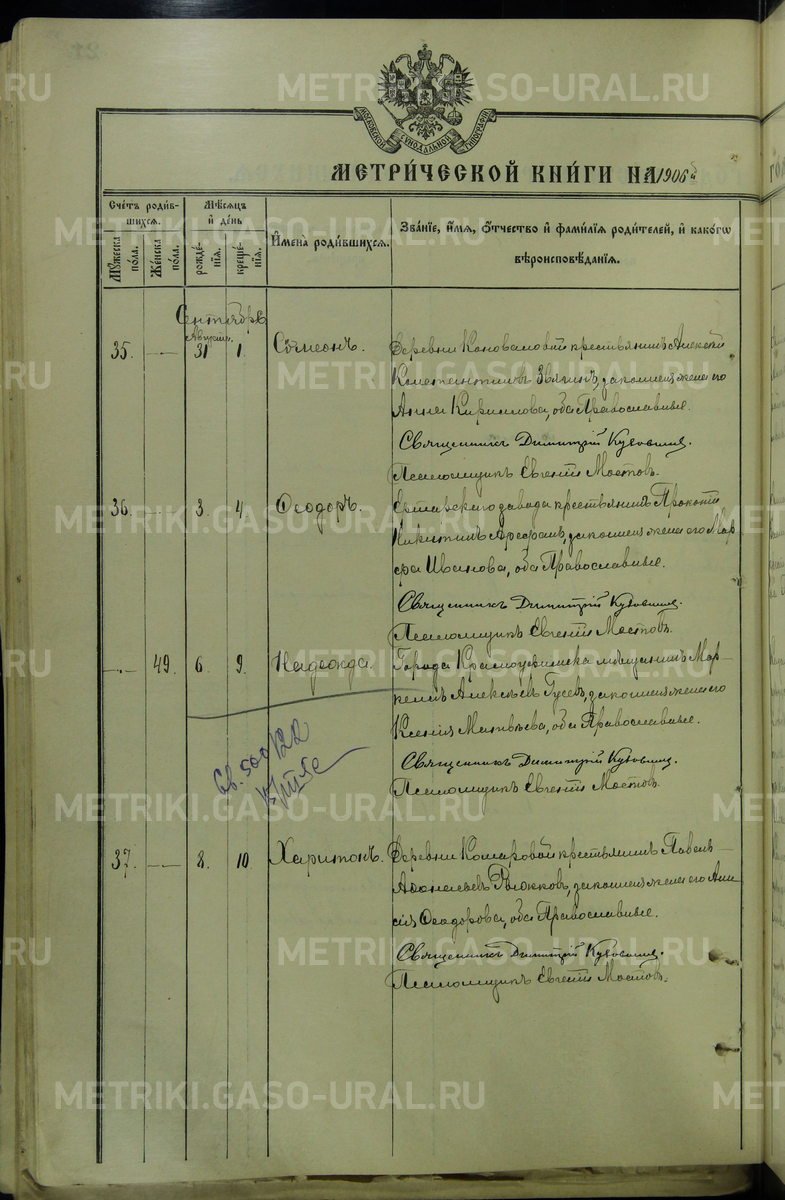 МОСКОВСКОЙ СУНОДАЛЬНОЙ ТИПОГРАФІИ
МЕТРИ́ЧЕСКОЙ КНИ́ГИ НА 1906
Сче́тъ роди́в-
шихся.
Му́жеска по́ла.
Же́нска по́ла.
Мѣ́сяцъ
и҆ де́нь
рожде́нїѧ.
креще́нїѧ.
И҆мена̀ роди́вшихсѧ.
Зва́нїе, и҆́мѧ, ѻ҆́тчество и҆ фами́лїѧ роди́телей, и҆ како́гѡ
вѣроисповѣ́данїѧ.
Сентябрь
Августа.
35. — 31 1. Сѵмеонъ. Деревни Коноваловой крестьянинъ Алексѣй
Константиновъ Звягинъ, законная жена его
Анна Кириллова, оба Православные.
Священникъ Димитрій
Псаломщикъ Евгеній Мостовъ.
36. — 3. 4. Ѳеодоръ. завода крестьянинъ Прокопій
Никитинъ законная жена его Мар
ѳа Иванова, оба Православные.
Священникъ Димитрій
Псаломщикъ Евгеній Мостовъ.
— 49. 6. 9. Надежда. Города Красноуфимска мѣщанинъ Мар-
келъ Алексѣевъ Гусевъ, законная жена его
Ксенія Матвѣева, оба Православные.
Св. 500/122
Священникъ Димитрій
Псаломщикъ Евгеній Мостовъ.
37. — 8. 10. Харитонъ. Деревни Комаровой крестьянинъ Павелъ
законная жена его Ани
сія Ѳеодорова, оба Православные.
Священникъ Димитрій
Псаломщикъ Евгеній Мостовъ.
METRIKI.GASO-URAL.RU